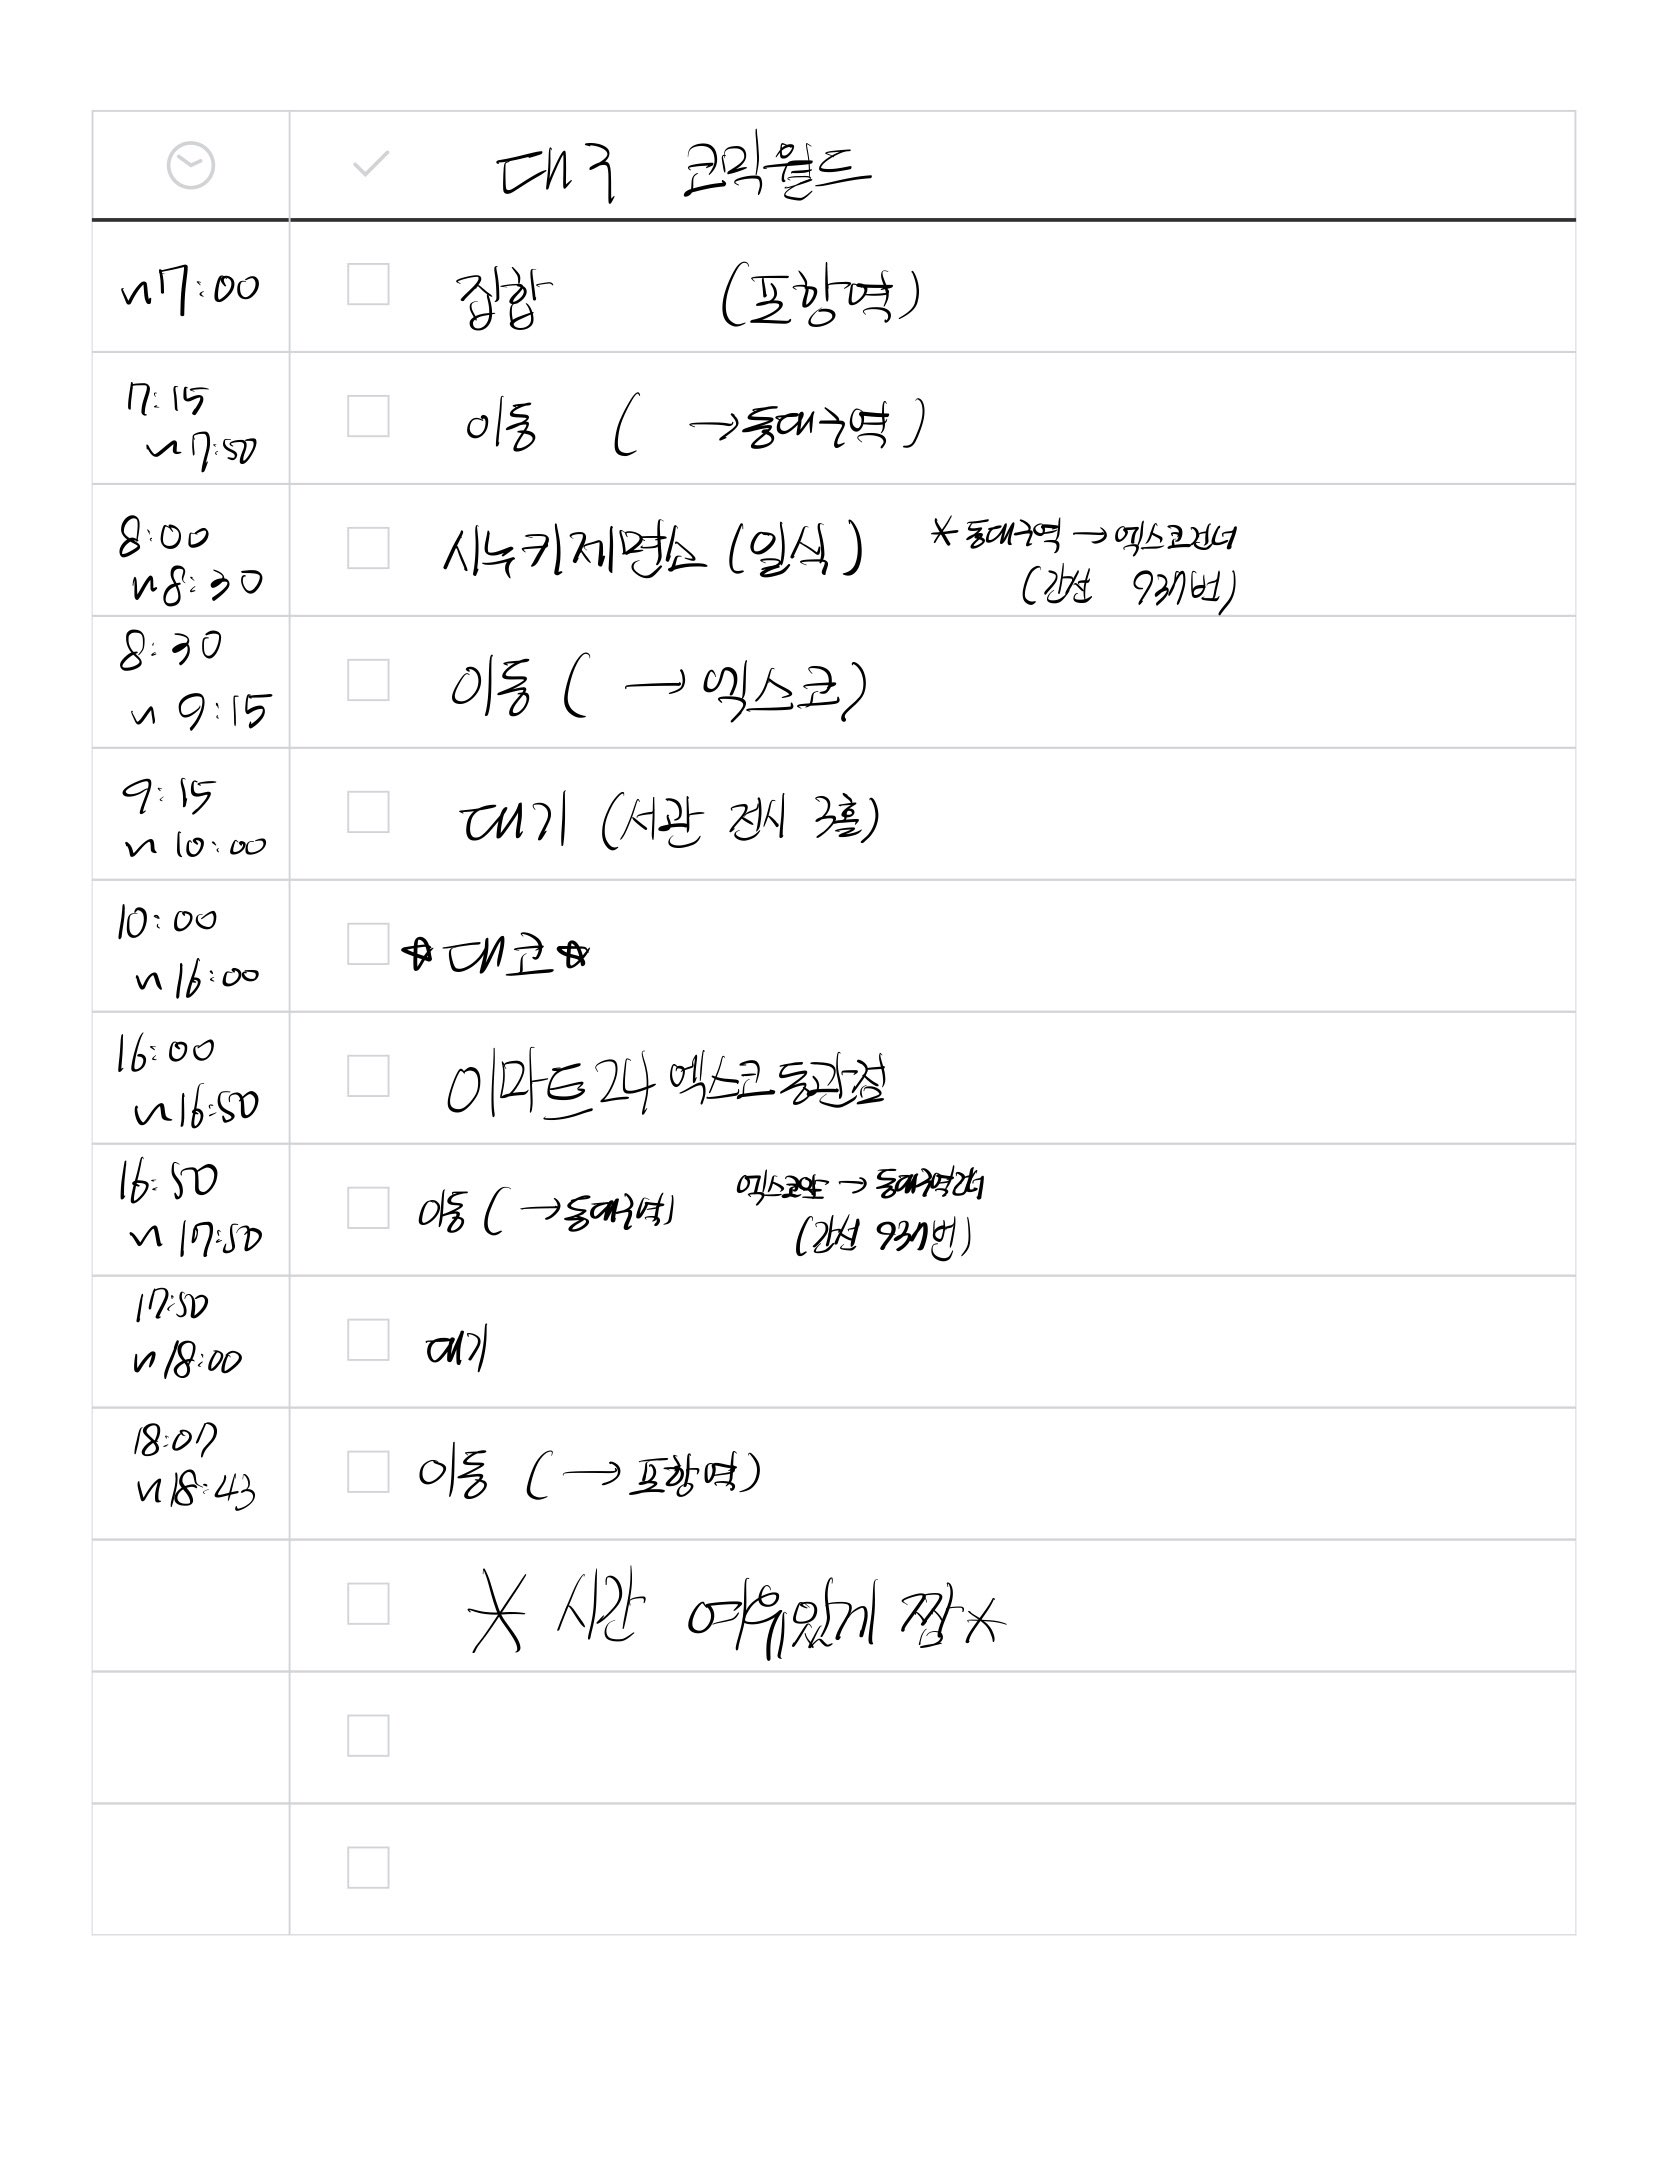 대구 코믹월드
~7:00 집합 (포항역)
7:15 ~7:50 이동 ( →동대구역)
8:00 ~8:30 시누키제면소 (일식) *동대구역 → 엑스코건너 (간선 937번)
8:30 ~9:15 이동 ( → 엑스코)
9:15 ~10:00 대기 (서관 전시 3홀)
10:00 ~16:00 ☆대코☆
16:00 ~16:50 이마트24 엑스코동관점
16:50 ~17:50 이동 ( →동대구역) 엑스코앞 → 동대구역건너 (간선 937번)
17:50 ~18:00 대기
18:07 ~18:43 이동 ( → 포항역)
* 시간 여유있게 짬*